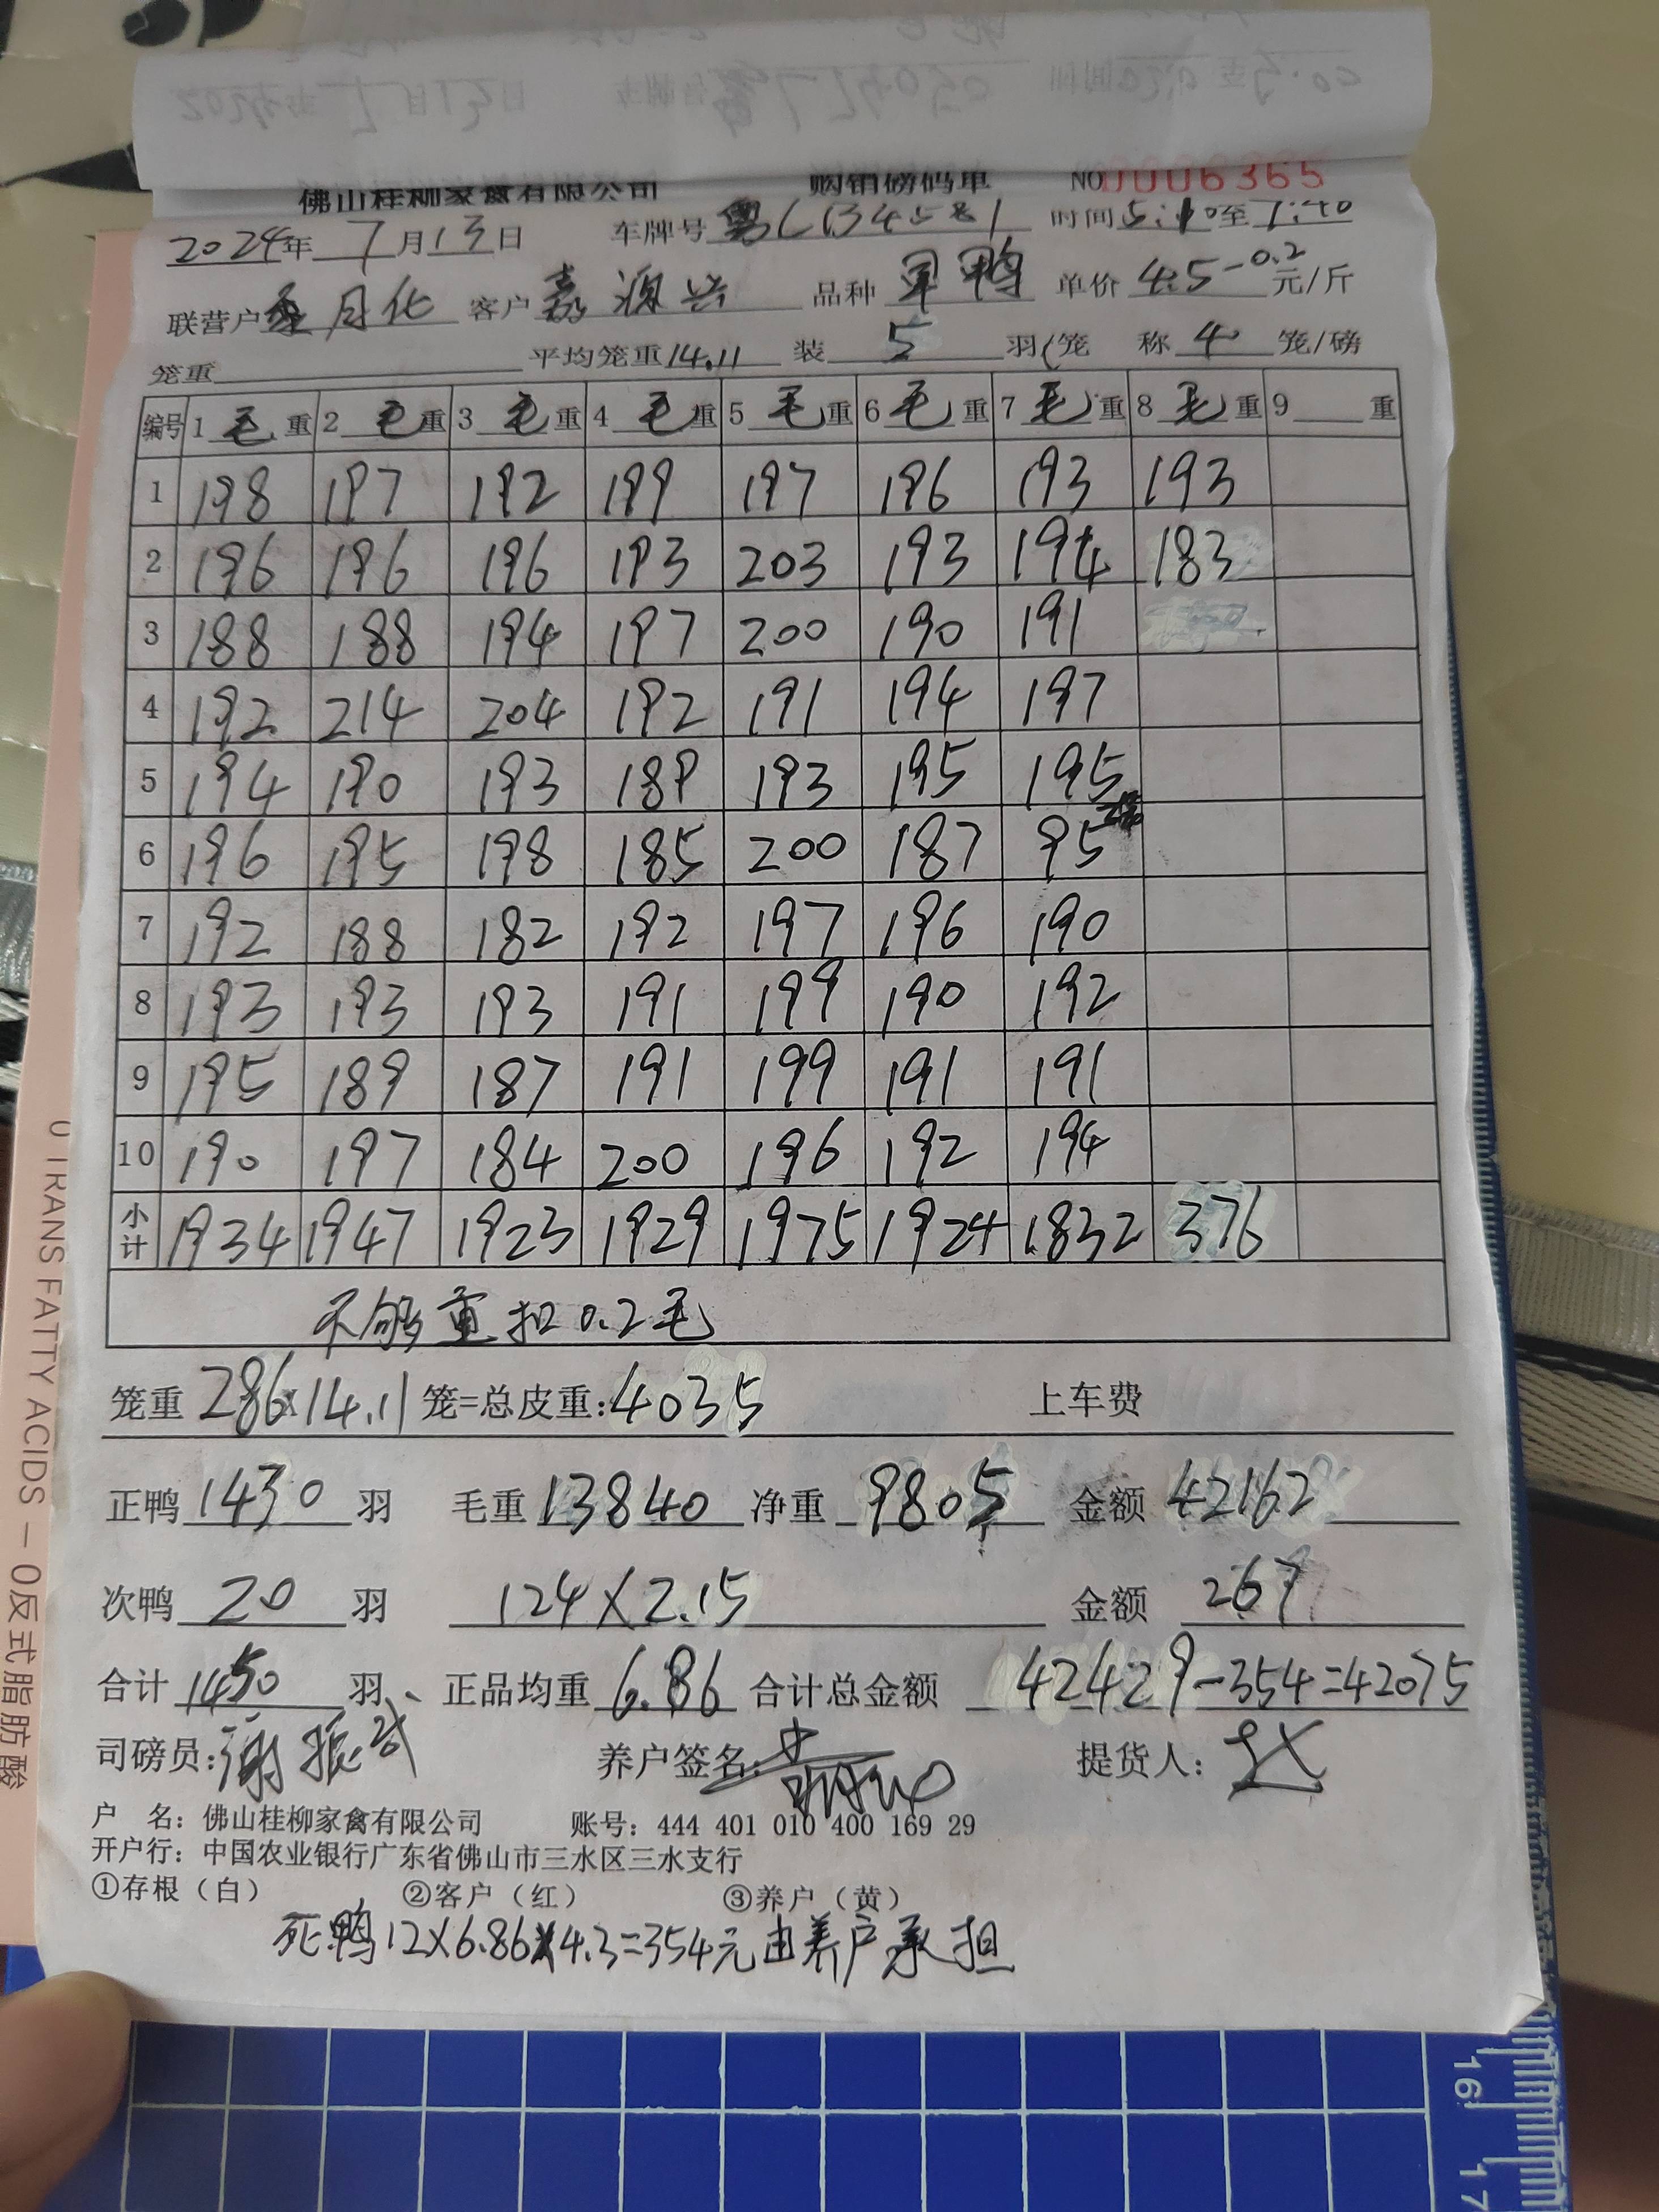 佛山桂柳家禽有限公司 购销磅码单 NO 0006365
2024年 7月13日 车牌号 时间 5:10至7:40
联营户 月化 客户 嘉源兴 品种 鸭 单价 4.5-0.2 元/斤
笼重 平均笼重 14.11 装 5 羽/笼 称 4 笼/磅
编号 1 毛重 2 毛重 3 毛重 4 毛重 5 毛重 6 毛重 7 毛重 8 毛重 9 重
1 198 197 192 199 197 196 193 193
2 196 196 196 193 203 193 194 183
3 188 188 194 197 200 190 191
4 192 214 204 192 191 194 197
5 194 190 193 189 193 195 195
6 196 195 198 185 200 187 95
7 192 188 182 192 197 196 190
8 193 193 193 191 199 190 192
9 195 189 187 191 199 191 191
10 190 197 184 200 196 192 194
小计 1934 1947 1923 1929 1975 1924 1832 376
不够重扣0.2毛
笼重 286x14.11 笼=总皮重:4035 上车费
正鸭 1430 羽 毛重 13840 净重 9805 金额 42162
次鸭 20 羽 124×2.15 金额 267
合计 1450 羽 正品均重 6.86 合计总金额 42429-354=42075
司磅员:谢振武 养户签名: 提货人:
户 名: 佛山桂柳家禽有限公司 账号: 444 401 010 400 169 29
开户行: 中国农业银行广东省佛山市三水区三水支行
①存根（白） ②客户（红） ③养户（黄）
死鸭12×6.86×4.3=354元由养户承担
0 TRANS FATTY ACIDS — 0反式脂肪酸
16
17